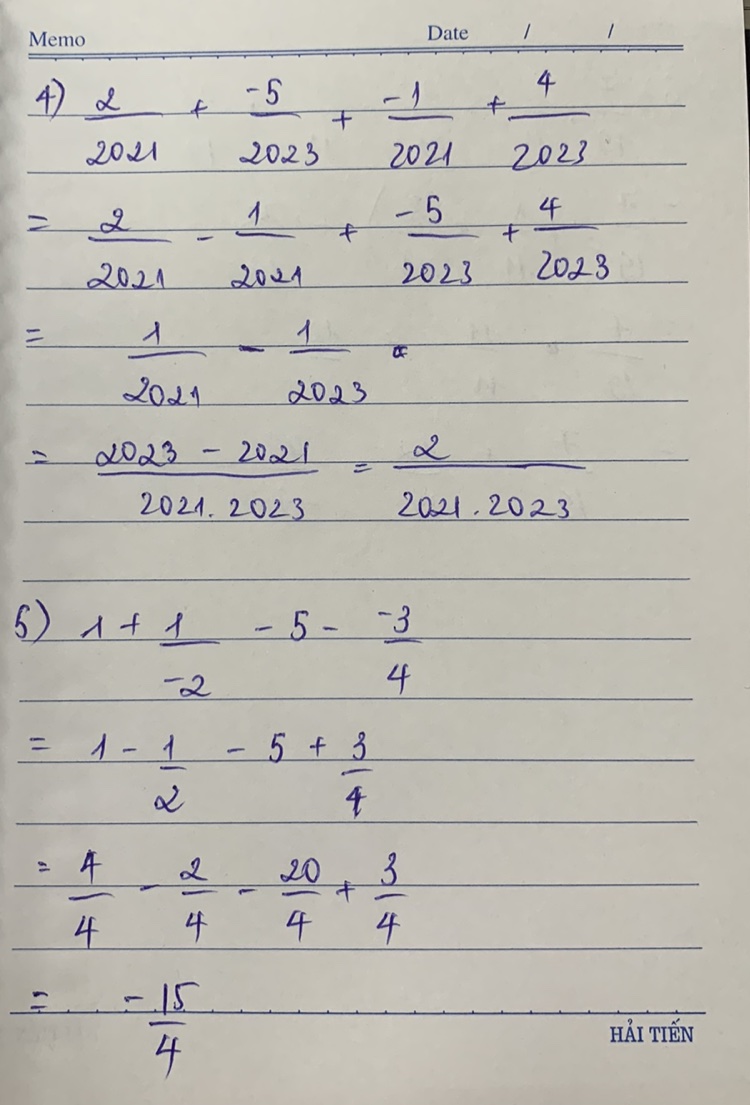 Memo Date / /
4) 2/2021 + -5/2023 + -1/2021 + 4/2023
= 2/2021 - 1/2021 + -5/2023 + 4/2023
= 1/2021 - 1/2023
= 2023 - 2021/2021.2023 = 2/2021.2023
5) 1 + 1/-2 - 5 - -3/4
= 1 - 1/2 - 5 + 3/4
= 4/4 - 2/4 - 20/4 + 3/4
= -15/4
HẢI TIẾN